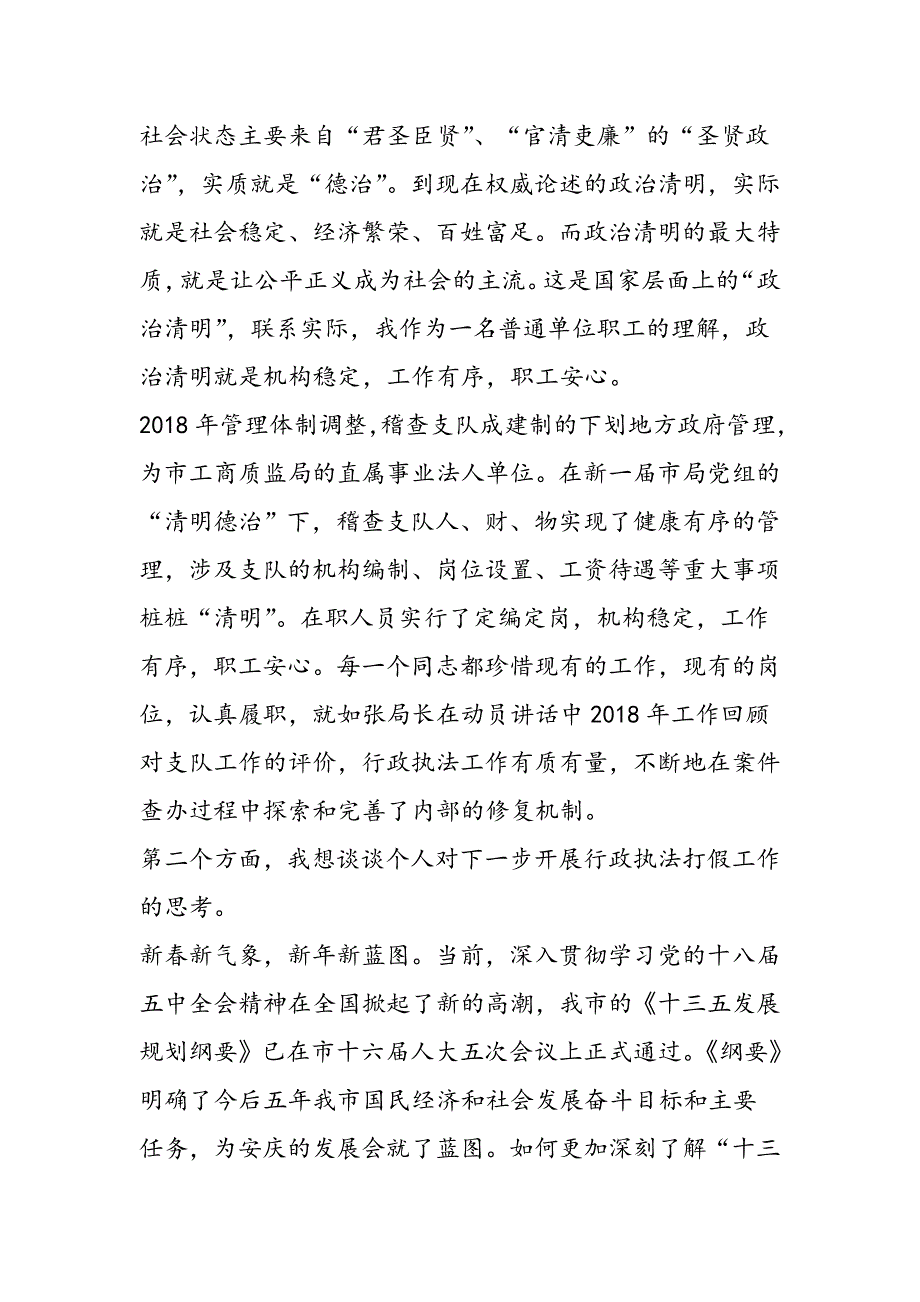 社会状态主要来自“君圣臣贤”、“官清吏廉”的“圣贤政
治”，实质就是“德治”。到现在权威论述的政治清明，实际
就是社会稳定、经济繁荣、百姓富足。而政治清明的最大特
质，就是让公平正义成为社会的主流。这是国家层面上的“政
治清明”，联系实际，我作为一名普通单位职工的理解，政
治清明就是机构稳定，工作有序，职工安心。
2018 年管理体制调整，稽查支队成建制的下划地方政府管理，
为市工商质监局的直属事业法人单位。在新一届市局党组的
“清明德治”下，稽查支队人、财、物实现了健康有序的管
理，涉及支队的机构编制、岗位设置、工资待遇等重大事项
桩桩“清明”。在职人员实行了定编定岗，机构稳定，工作
有序，职工安心。每一个同志都珍惜现有的工作，现有的岗
位，认真履职，就如张局长在动员讲话中 2018 年工作回顾
对支队工作的评价，行政执法工作有质有量，不断地在案件
查办过程中探索和完善了内部的修复机制。
第二个方面，我想谈谈个人对下一步开展行政执法打假工作
的思考。
新春新气象，新年新蓝图。当前，深入贯彻学习党的十八届
五中全会精神在全国掀起了新的高潮，我市的《十三五发展
规划纲要》已在市十六届人大五次会议上正式通过。《纲要》
明确了今后五年我市国民经济和社会发展奋斗目标和主要
任务，为安庆的发展会就了蓝图。如何更加深刻了解“十三